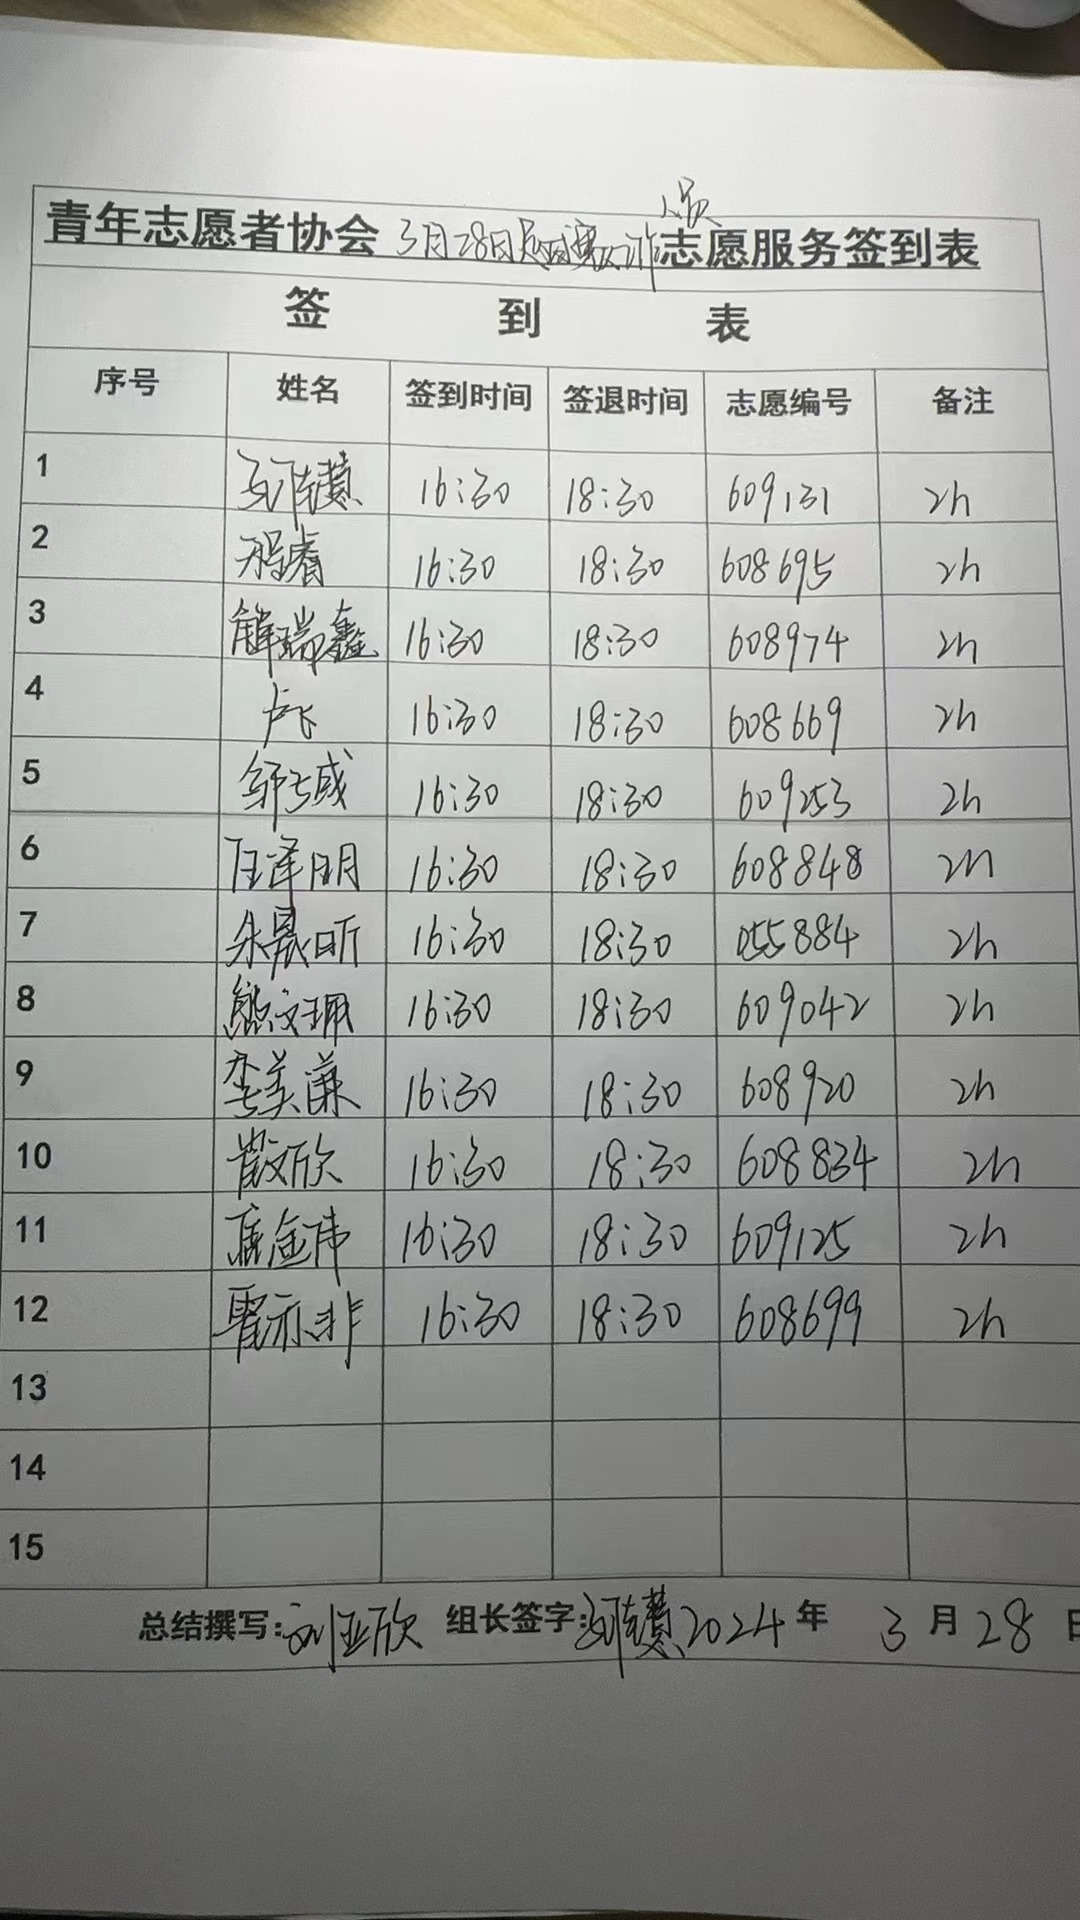 青年志愿者协会3月28日志愿服务签到表
签 到 表
序号 姓名 签到时间 签退时间 志愿编号 备注
1 16:30 18:30 609131 2h
2 16:30 18:30 608695 2h
3 解瑞鑫 16:30 18:30 608974 2h
4 卢飞 16:30 18:30 608669 2h
5 16:30 18:30 609253 2h
6 汪泽明 16:30 18:30 608848 2h
7 朱晟昕 16:30 18:30 055884 2h
8 熊文珮 16:30 18:30 609042 2h
9 李美谦 16:30 18:30 608920 2h
10 16:30 18:30 608834 2h
11 唐金伟 16:30 18:30 609125 2h
12 翟亦非 16:30 18:30 608699 2h
13
14
15
总结撰写:刘亚欣 组长签字: 2024年 3月28日